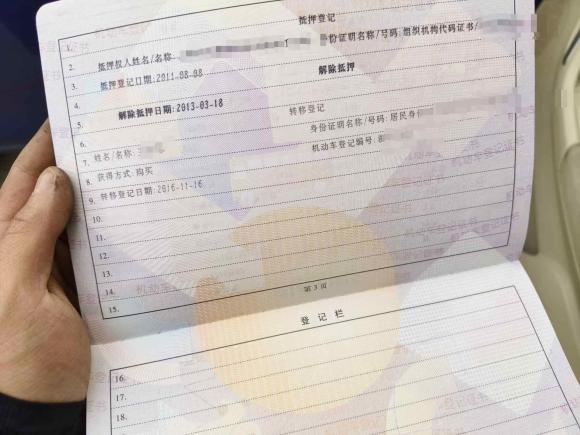 抵押登记
1.
2. 抵押权人姓名/名称: 身份证明名称/号码: 组织机构代码证书/
3. 抵押登记日期:2011-08-08
4. 解除抵押
5. 解除抵押日期:2013-03-18
6. 转移登记
7. 姓名/名称: 身份证明名称/号码: 居民身份
8. 获得方式: 购买 机动车登记编号:
9. 转移登记日期:2016-11-16
10.
11.
12.
13.
14.
15.
第3页
登记栏
16.
17.
18.
机动车登记证书